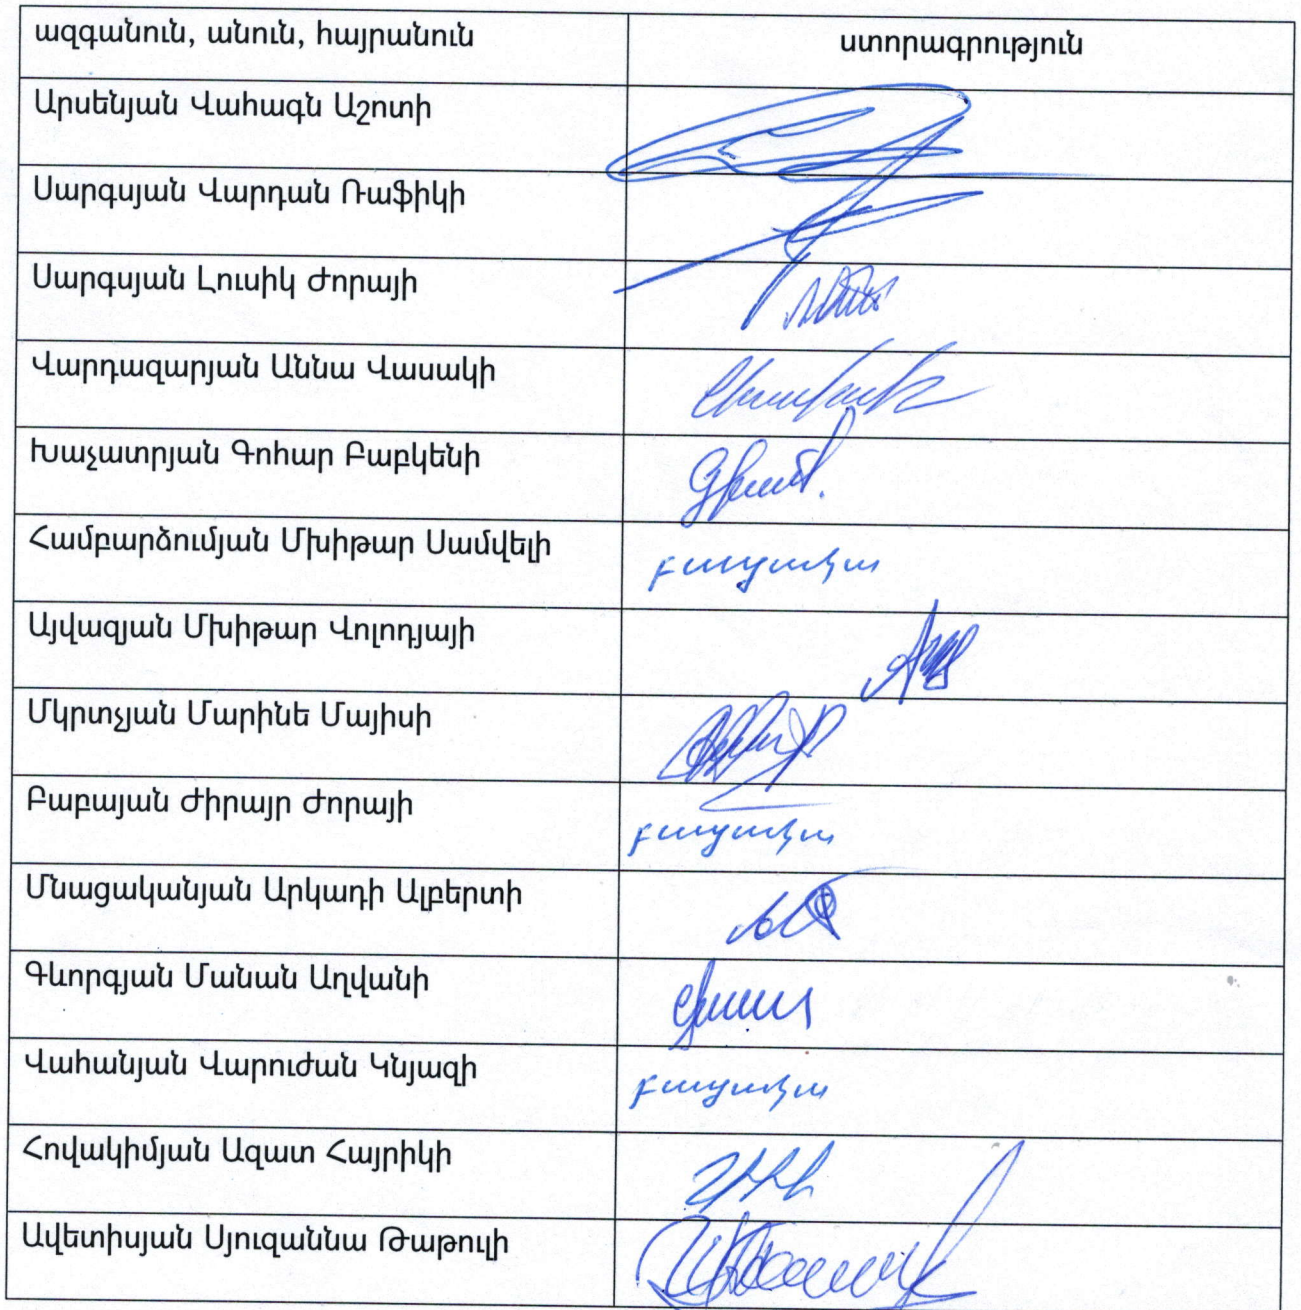 ազգանուն, անուն, հայրանուն ստորագրություն
Արսենյան Վահագն Աշոտի
Սարգսյան Վարդան Ռաֆիկի
Սարգսյան Լուսիկ Ժորայի
Վարդազարյան Աննա Վասակի
Խաչատրյան Գոհար Բաբկենի
Համբարձումյան Մխիթար Սամվելի բացակա
Այվազյան Մխիթար Վոլոդյայի
Մկրտչյան Մարինե Մայիսի
Բաբայան Ժիրայր Ժորայի բացակա
Մնացականյան Արկադի Ալբերտի
Գևորգյան Մանան Աղվանի
Վահանյան Վարուժան Կնյազի բացակա
Հովակիմյան Ազատ Հայրիկի
Ավետիսյան Սյուզաննա Թաթուլի